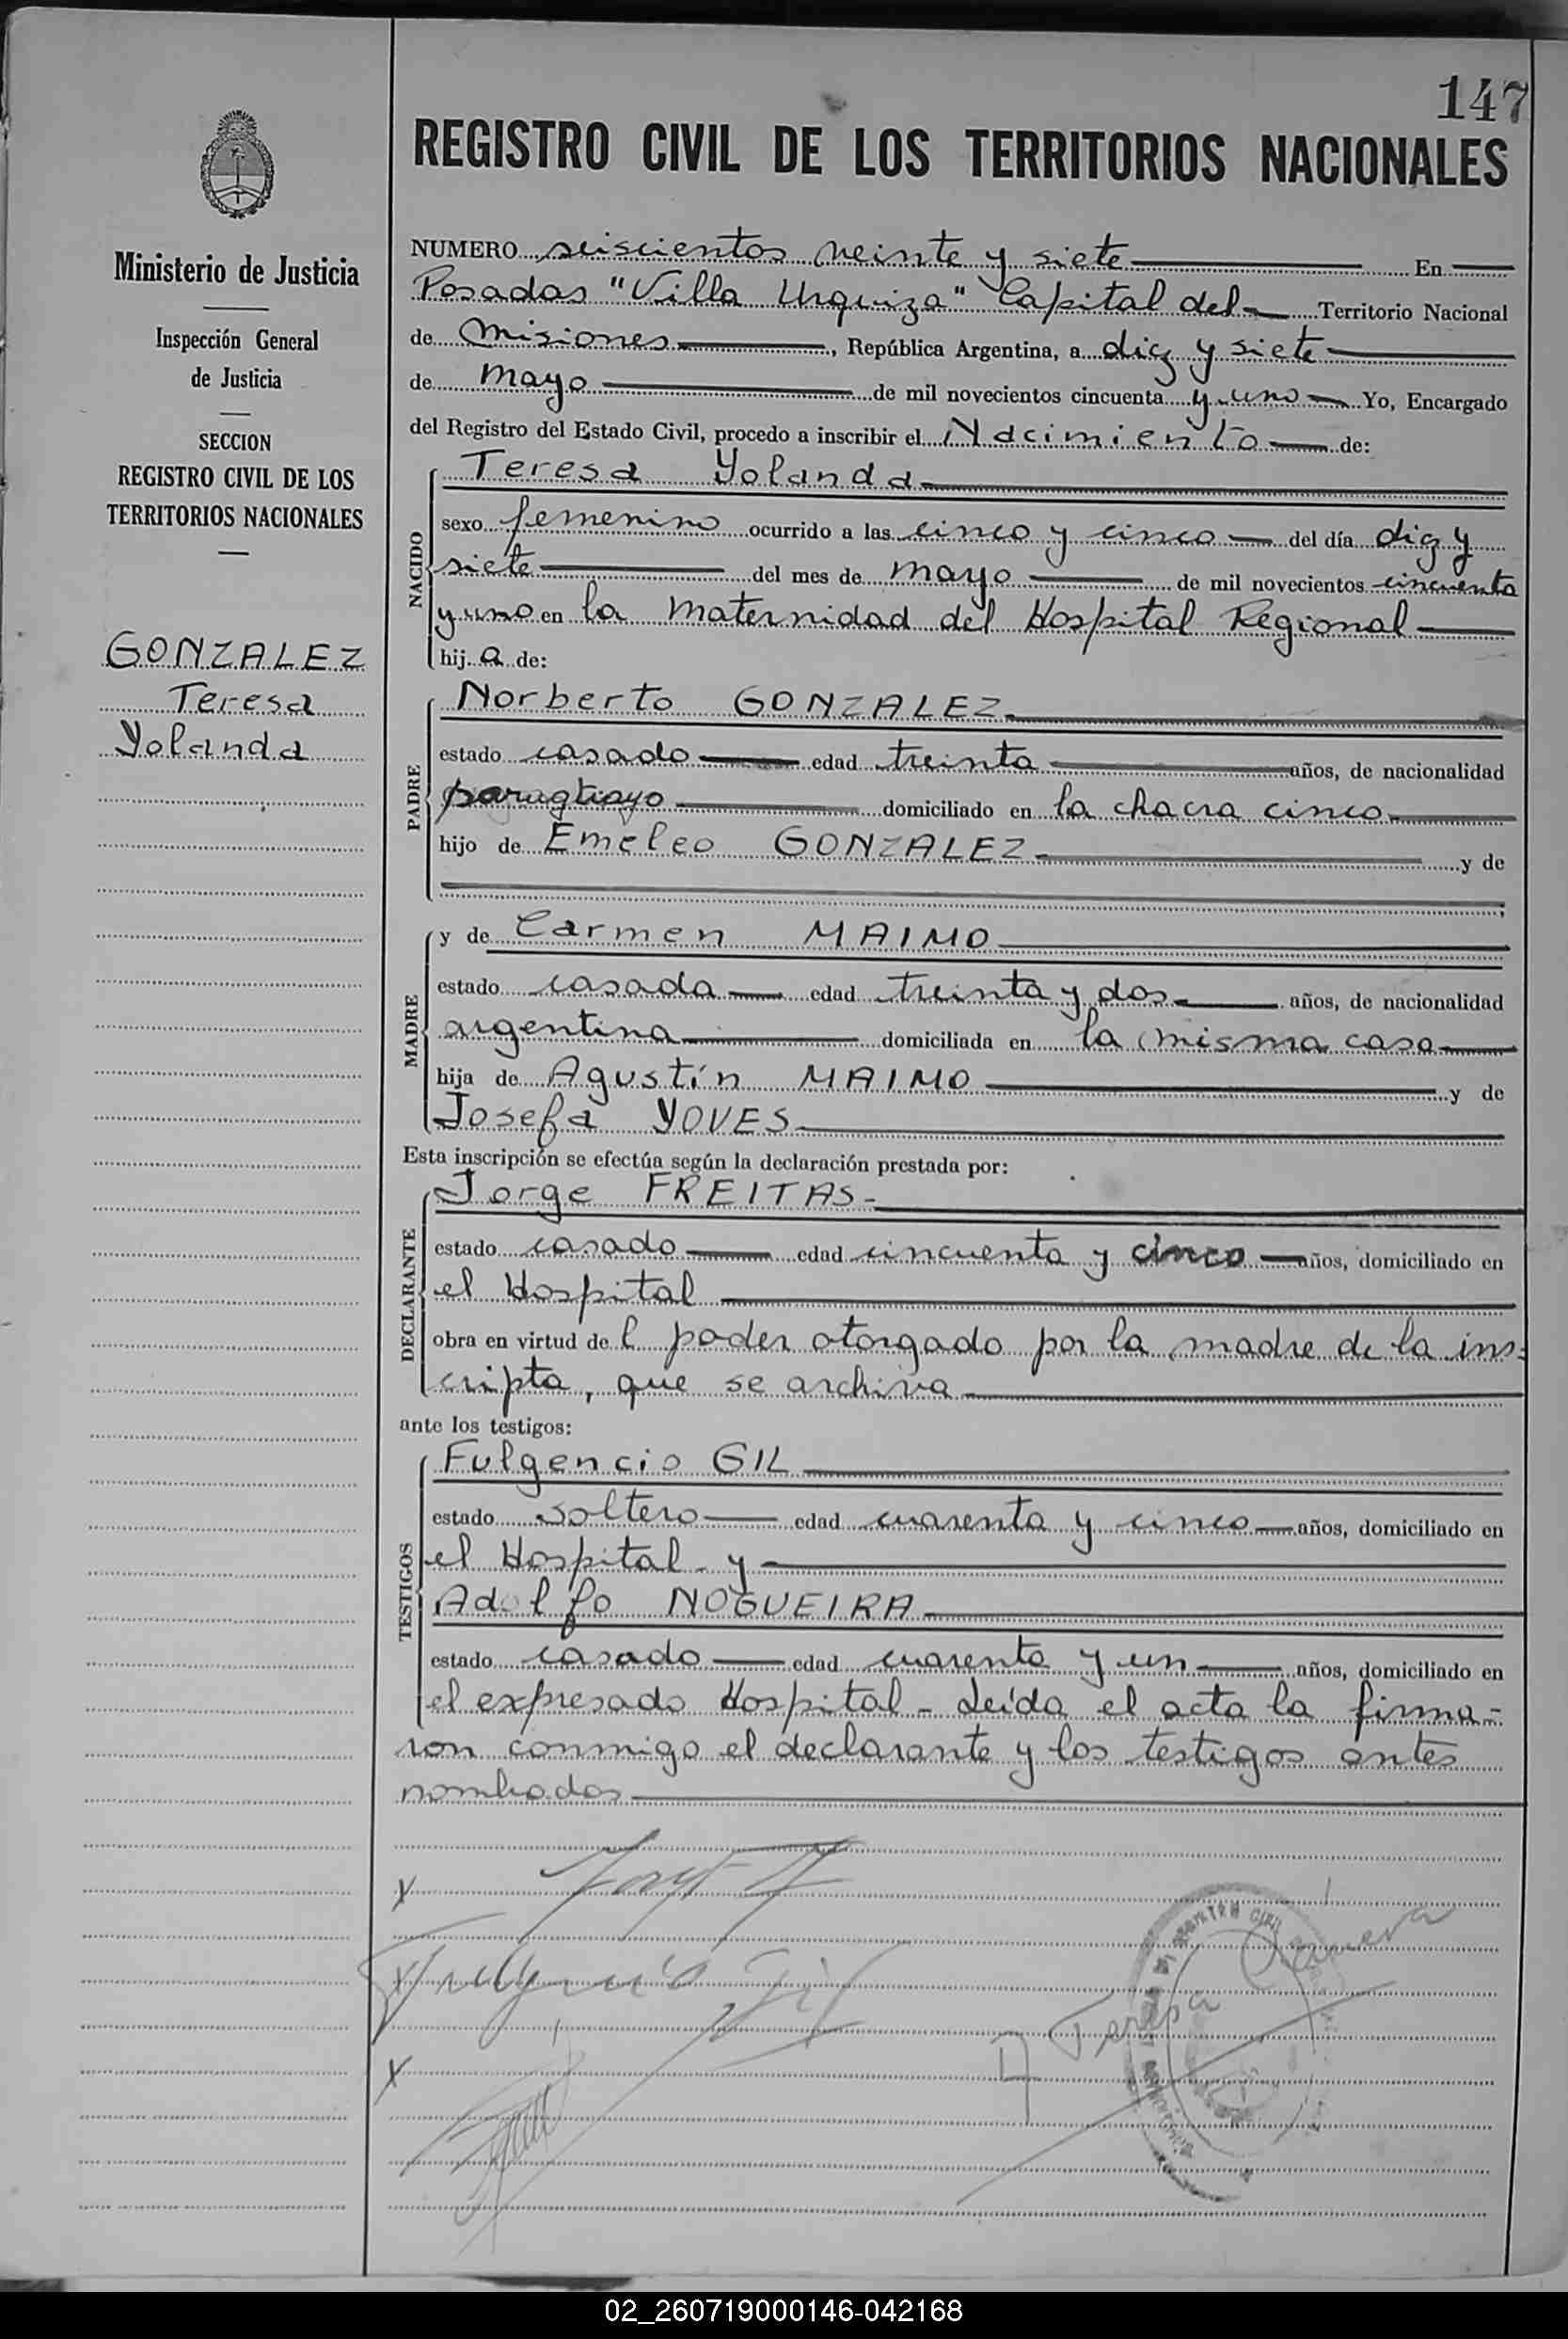 147
REGISTRO CIVIL DE LOS TERRITORIOS NACIONALES
Ministerio de Justicia
Inspección General
de Justicia
SECCION
REGISTRO CIVIL DE LOS
TERRITORIOS NACIONALES
GONZALEZ
Teresa
Yolanda
NUMERO seiscientos veinte y siete En
Posadas "Villa Urquiza" Capital del Territorio Nacional
de Misiones, República Argentina, a diez y siete
de mayo de mil novecientos cincuenta y uno Yo, Encargado
del Registro del Estado Civil, procedo a inscribir el Nacimiento de:
NACIDO
Teresa Yolanda
sexo femenino ocurrido a las cinco y cinco del día diez y
siete del mes de mayo de mil novecientos cincuenta
y uno en la Maternidad del Hospital Regional
hij a de:
PADRE
Norberto GONZALEZ
estado casado edad treinta años, de nacionalidad
paraguayo domiciliado en la chacra cinco
hijo de Emeleo GONZALEZ y de
MADRE
y de Carmen MAIMO
estado casada edad treinta y dos años, de nacionalidad
argentina domiciliada en la misma casa
hija de Agustín MAIMO y de
Josefa YOVES
Esta inscripción se efectúa según la declaración prestada por:
DECLARANTE
Jorge FREITAS
estado casado edad cincuenta y cinco años, domiciliado en
el Hospital
obra en virtud de l poder otorgado por la madre de la ins=
cripta, que se archiva
ante los testigos:
TESTIGOS
Fulgencio GIL
estado soltero edad cuarenta y cinco años, domiciliado en
el Hospital y
Adolfo NOGUEIRA
estado casado edad cuarenta y un años, domiciliado en
el expresado Hospital - Leída el acta la firma=
ron conmigo el declarante y los testigos antes
nombrados
x
x Fulgencio Gil
x
Teresa
02_260719000146-042168